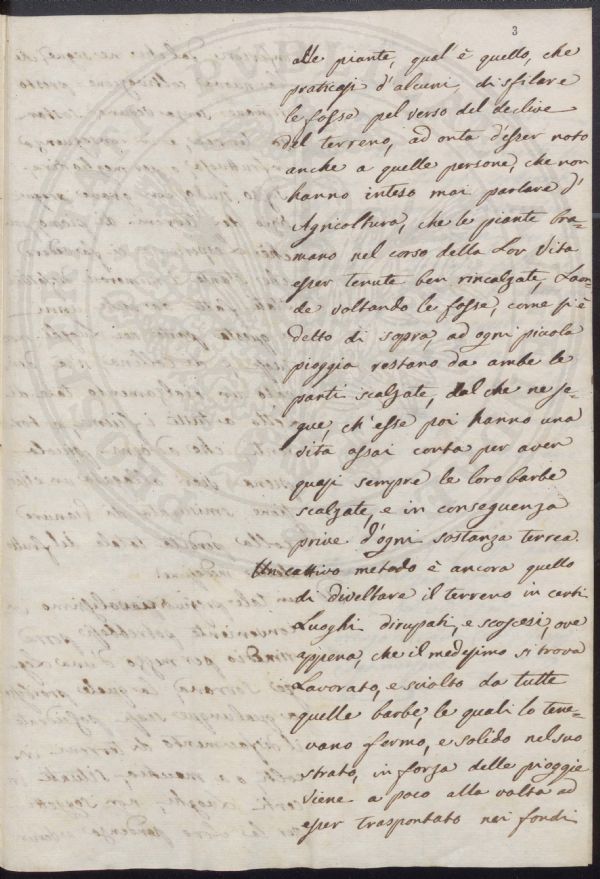 3
alle piante, qual'è quello, che
praticasi d'alcuni, di sfilare
le fosse pel verso del declive
del terreno, ad onta d'esser noto
anche a quelle persone, che non
hanno inteso mai parlare d'
Agricoltura, che le piante bra-
mano nel corso della Lor Vita
esser tenute ben rincalzate, Laon-
de voltando le fosse, come si è
detto di sopra, ad ogni piccola
pioggia restano da ambe le
parti scalzate, del che ne se-
gue, ch'esse poi hanno una
vita assai corta per aver
quasi sempre le loro barbe
scalzate, e in conseguenza
prive d'ogni sostanza terrea.
Un cattivo metodo è ancora quello
di diveltare il terreno in certi
Luoghi dirupati, e scoscesi, ove
appena, che il medesimo si trova
Lavorato, e sciolto da tutte
quelle barbe, le quali lo tene-
vano fermo, e solido nel suo
strato, in forza delle pioggie
viene a poco alla volta ad
esser trasportato nei fondi